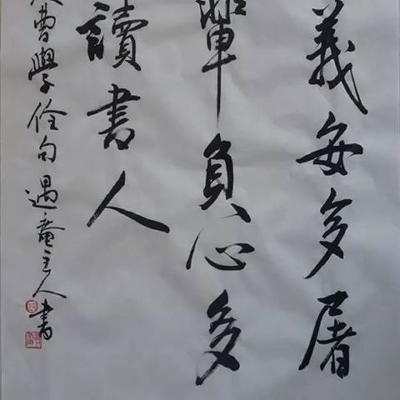 義每多屠
輩負心多
讀書人
曹學佺句遇庵主人書